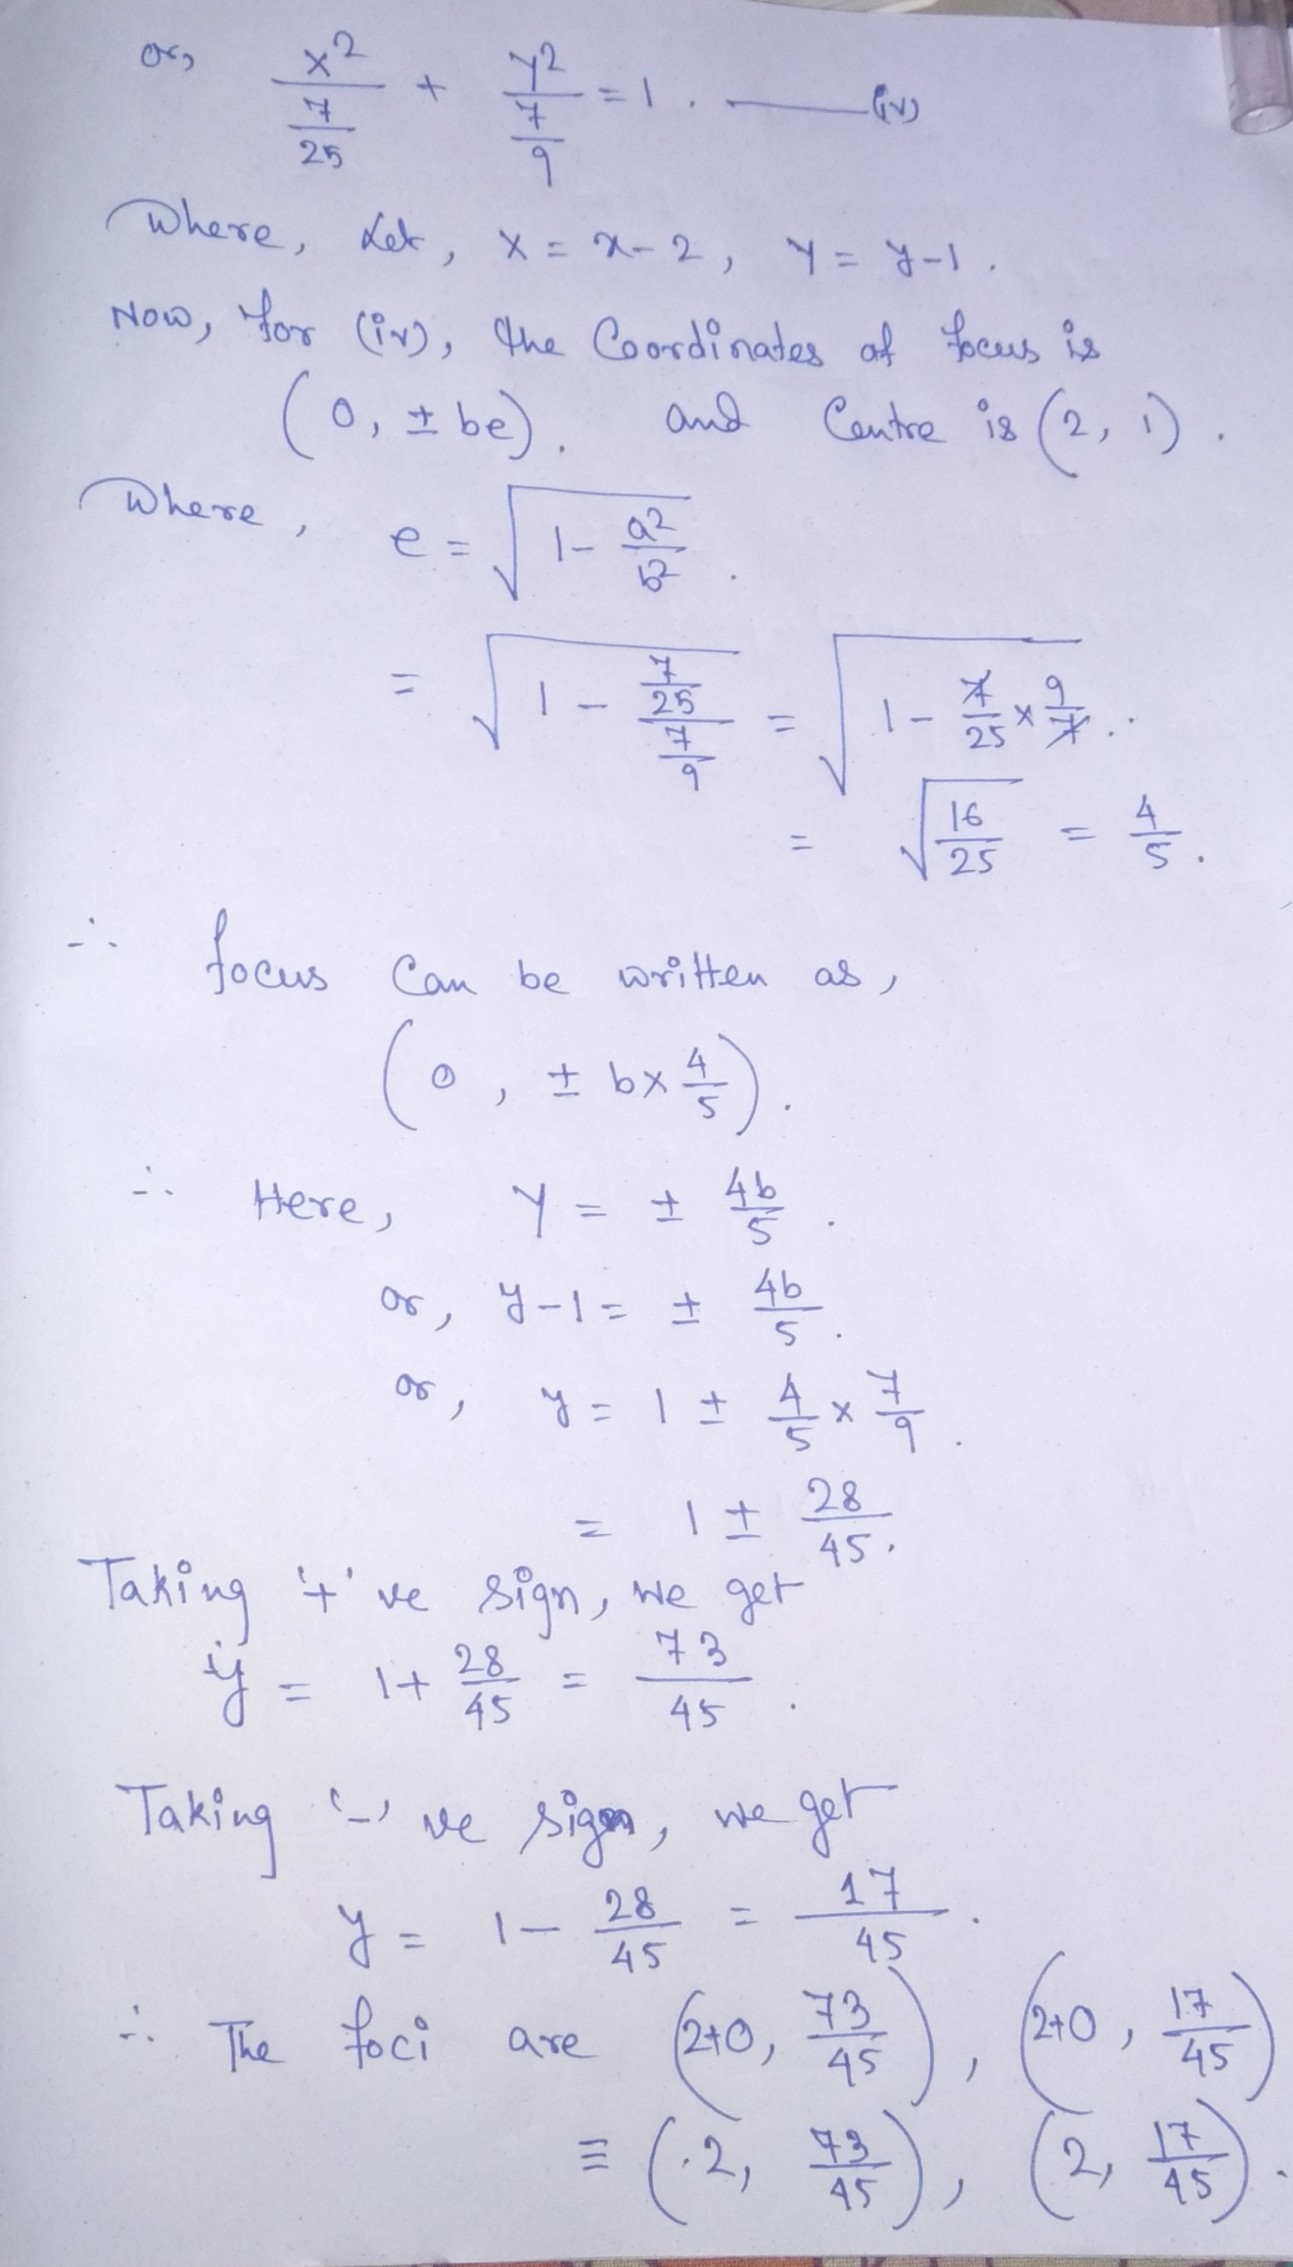 or, x²/(7/25) + y²/(7/9) = 1. ——— (iv)
Where, Let, X = x-2, Y = y-1.
Now, for (iv), the Coordinates of focus is
(0, ± be). and Centre is (2, 1).
Where, e = √(1 - a²/b²).
= √(1 - (7/25)/(7/9)) = √(1 - 7/25 × 9/7).
= √(16/25) = 4/5.
∴ focus can be written as,
(0, ± b× 4/5).
∴ Here, Y = ± 4b/5.
or, y-1 = ± 4b/5.
or, y = 1 ± 4/5 × 7/9.
= 1 ± 28/45.
Taking '+'ve sign, we get
y = 1+ 28/45 = 73/45.
Taking '-'ve sign, we get
y = 1- 28/45 = 17/45.
∴ The foci are (2+0, 73/45), (2+0, 17/45)
≡ (2, 73/45), (2, 17/45).